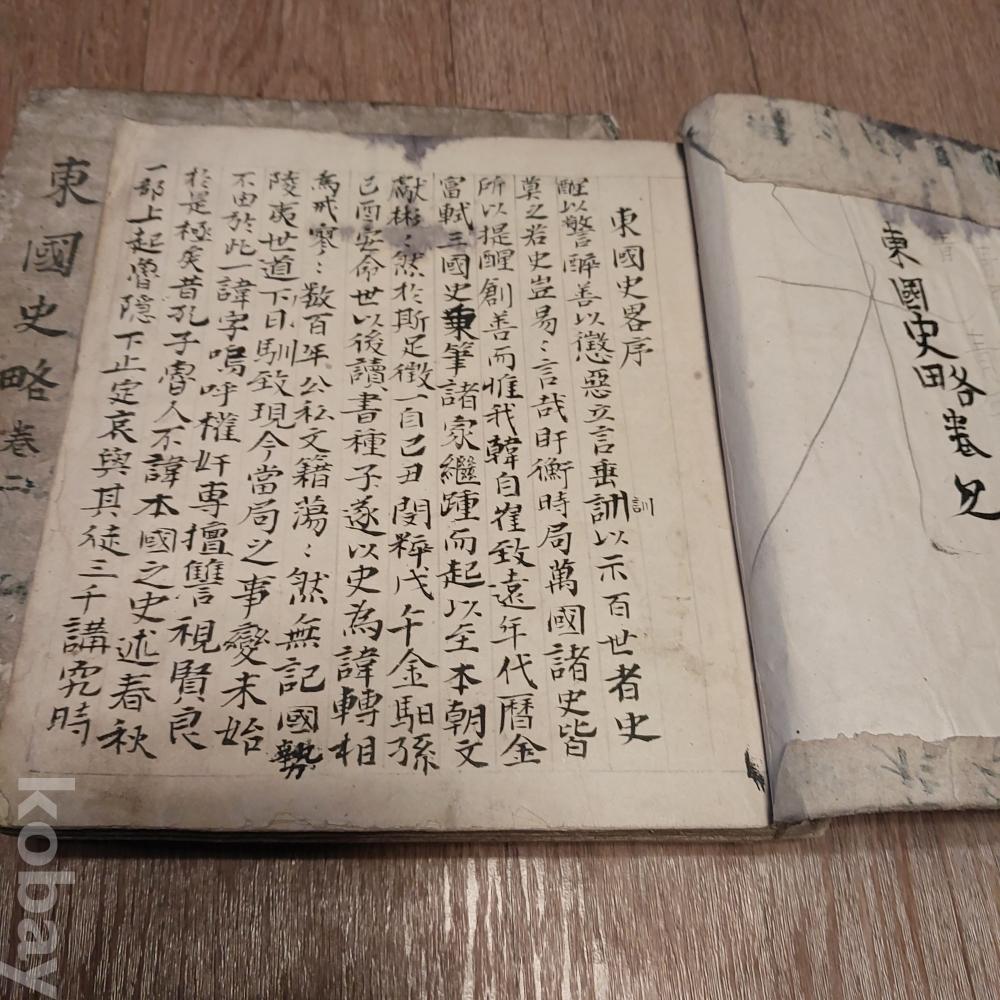 東國史略卷
東國史畧序
醒以警醉善以懲惡立言垂訓以示百世者史
訓
莫之若史豈易〻言哉盱衡時局萬國諸史皆
所以提醒創善而惟我韓自崔致遠年代曆金
富軾三國史秉筆諸家繼踵而起以至本朝文
獻彬〻然於斯足徵一自己丑閔粹戊午金馹孫
己酉安命世以後讀書種子遂以史為諱轉相
為戒寥〻數百年公私文籍蕩〻然無記國勢
陵夷世道下日馴致現今當局之事變未始
不由於此一諱字嗚呼權奸專擅讐視賢良
於是極矣昔孔子魯人不諱本國之史述春秋
一部上起魯隱下止定哀與其徒三千講究時
東國史略卷二
kobay